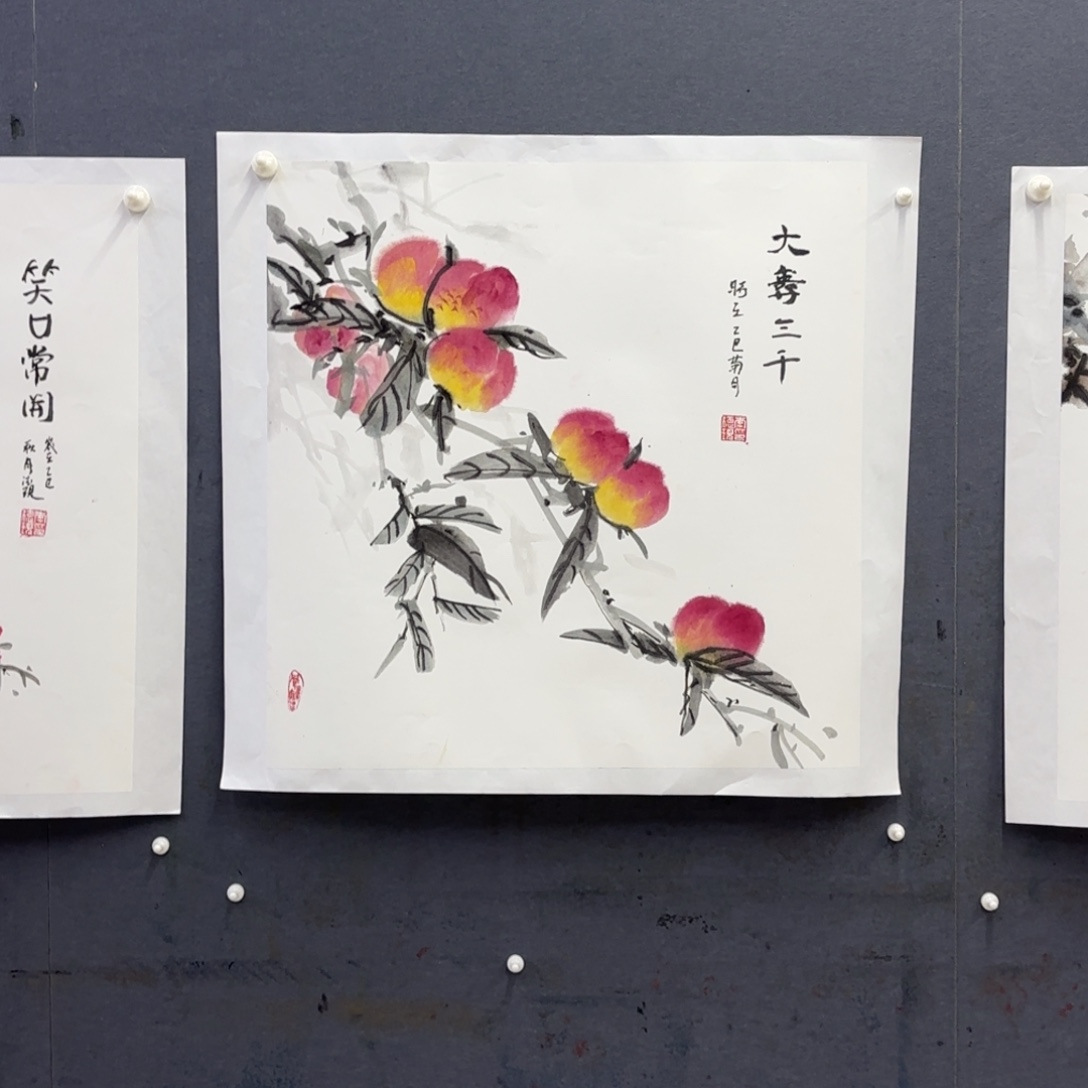 笑口常開
歲在乙巳
秋月
大壽三千
時在乙巳菊月